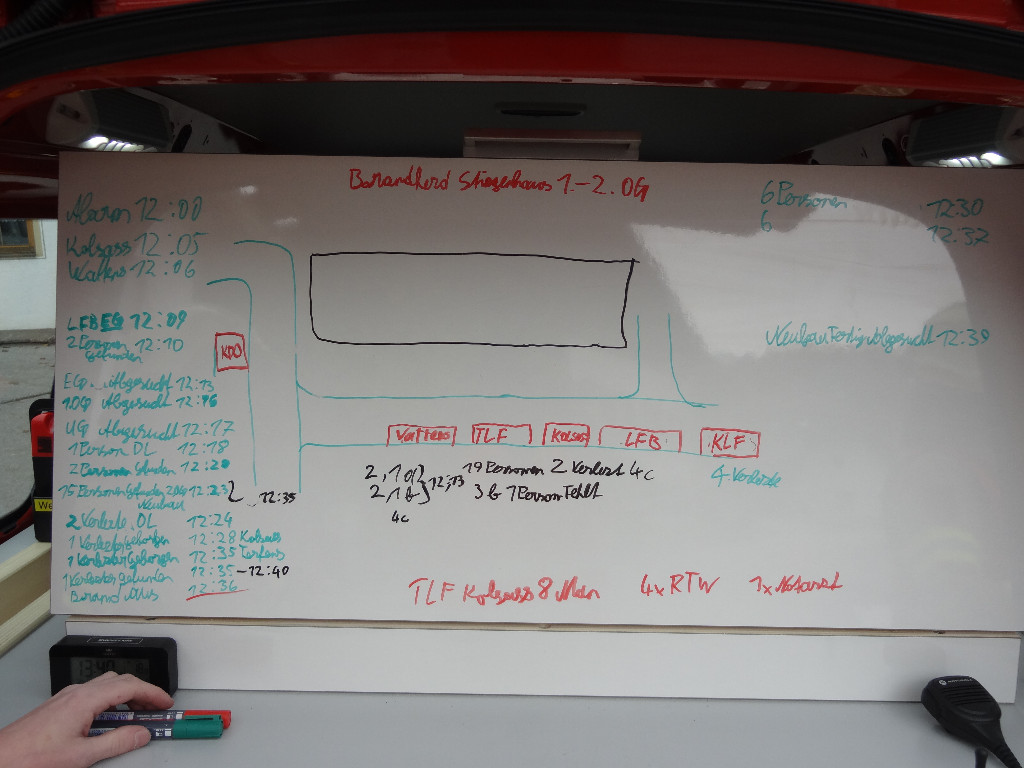 Barandherd Stiegenhaus 1-2.OG
Alarm 12:00
Kolsass 12:05
Wattens 12:06
LFB EG 12:09
2 Personen gefunden 12:10
EG Abgesucht 12:13
1.OG Abgesucht 12:16
UG Abgesucht 12:17
1 Person DL 12:18
2 Personen 12:20
15 Personen gefunden 2.OG 12:23
Neubau
2 12:35
2 Verletzte DL 12:24
1 Verletzter geborgen 12:28 Kolsass
1 Verletzter geborgen 12:35 Terfens
1 Verletzter gefunden 12:35-12:40
Barand Aus 12:36
KDO
6 Personen 12:30
6 12:37
Neubau Fertig Abgesucht 12:39
Wattens
TLF
Kolsass
LFB
KLF
2, 1a
2, 1b
12:13
4c
19 Personen 2 Verletzt 4c
3b 1 Person Fehlt
4 Verletzte
TLF Kolsass 8 Man
4x RTW
1x Notarzt
13:40